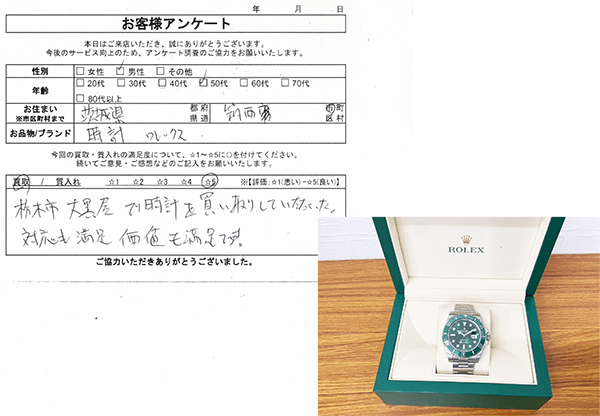 年 月 日
お客様アンケート
本日はご来店いただき、誠にありがとうございます。
今後のサービス向上のため、アンケート調査のご協力をお願いいたします。
性別 □女性 □男性 □その他
年齢 □20代 □30代 □40代 □50代 □60代 □70代
□80代以上
お住まい
※市区町村まで
茨城県 都府県道 筑西市 市町区村
お品物/ブランド 時計 ロレックス
今回の買取・質入れの満足度について、☆1～☆5に○を付けてください。
続いてご意見・ご感想などのご記入をお願いいたします。
買取 / 質入れ ☆1 ☆2 ☆3 ☆4 ☆5 ※【評価:☆1(悪い)−☆5(良い)】
栃木市 大黒屋 で時計を買い取りしていただいた。
対応も満足 価値も満足です。
ご協力いただきありがとうございました。
ROLEX